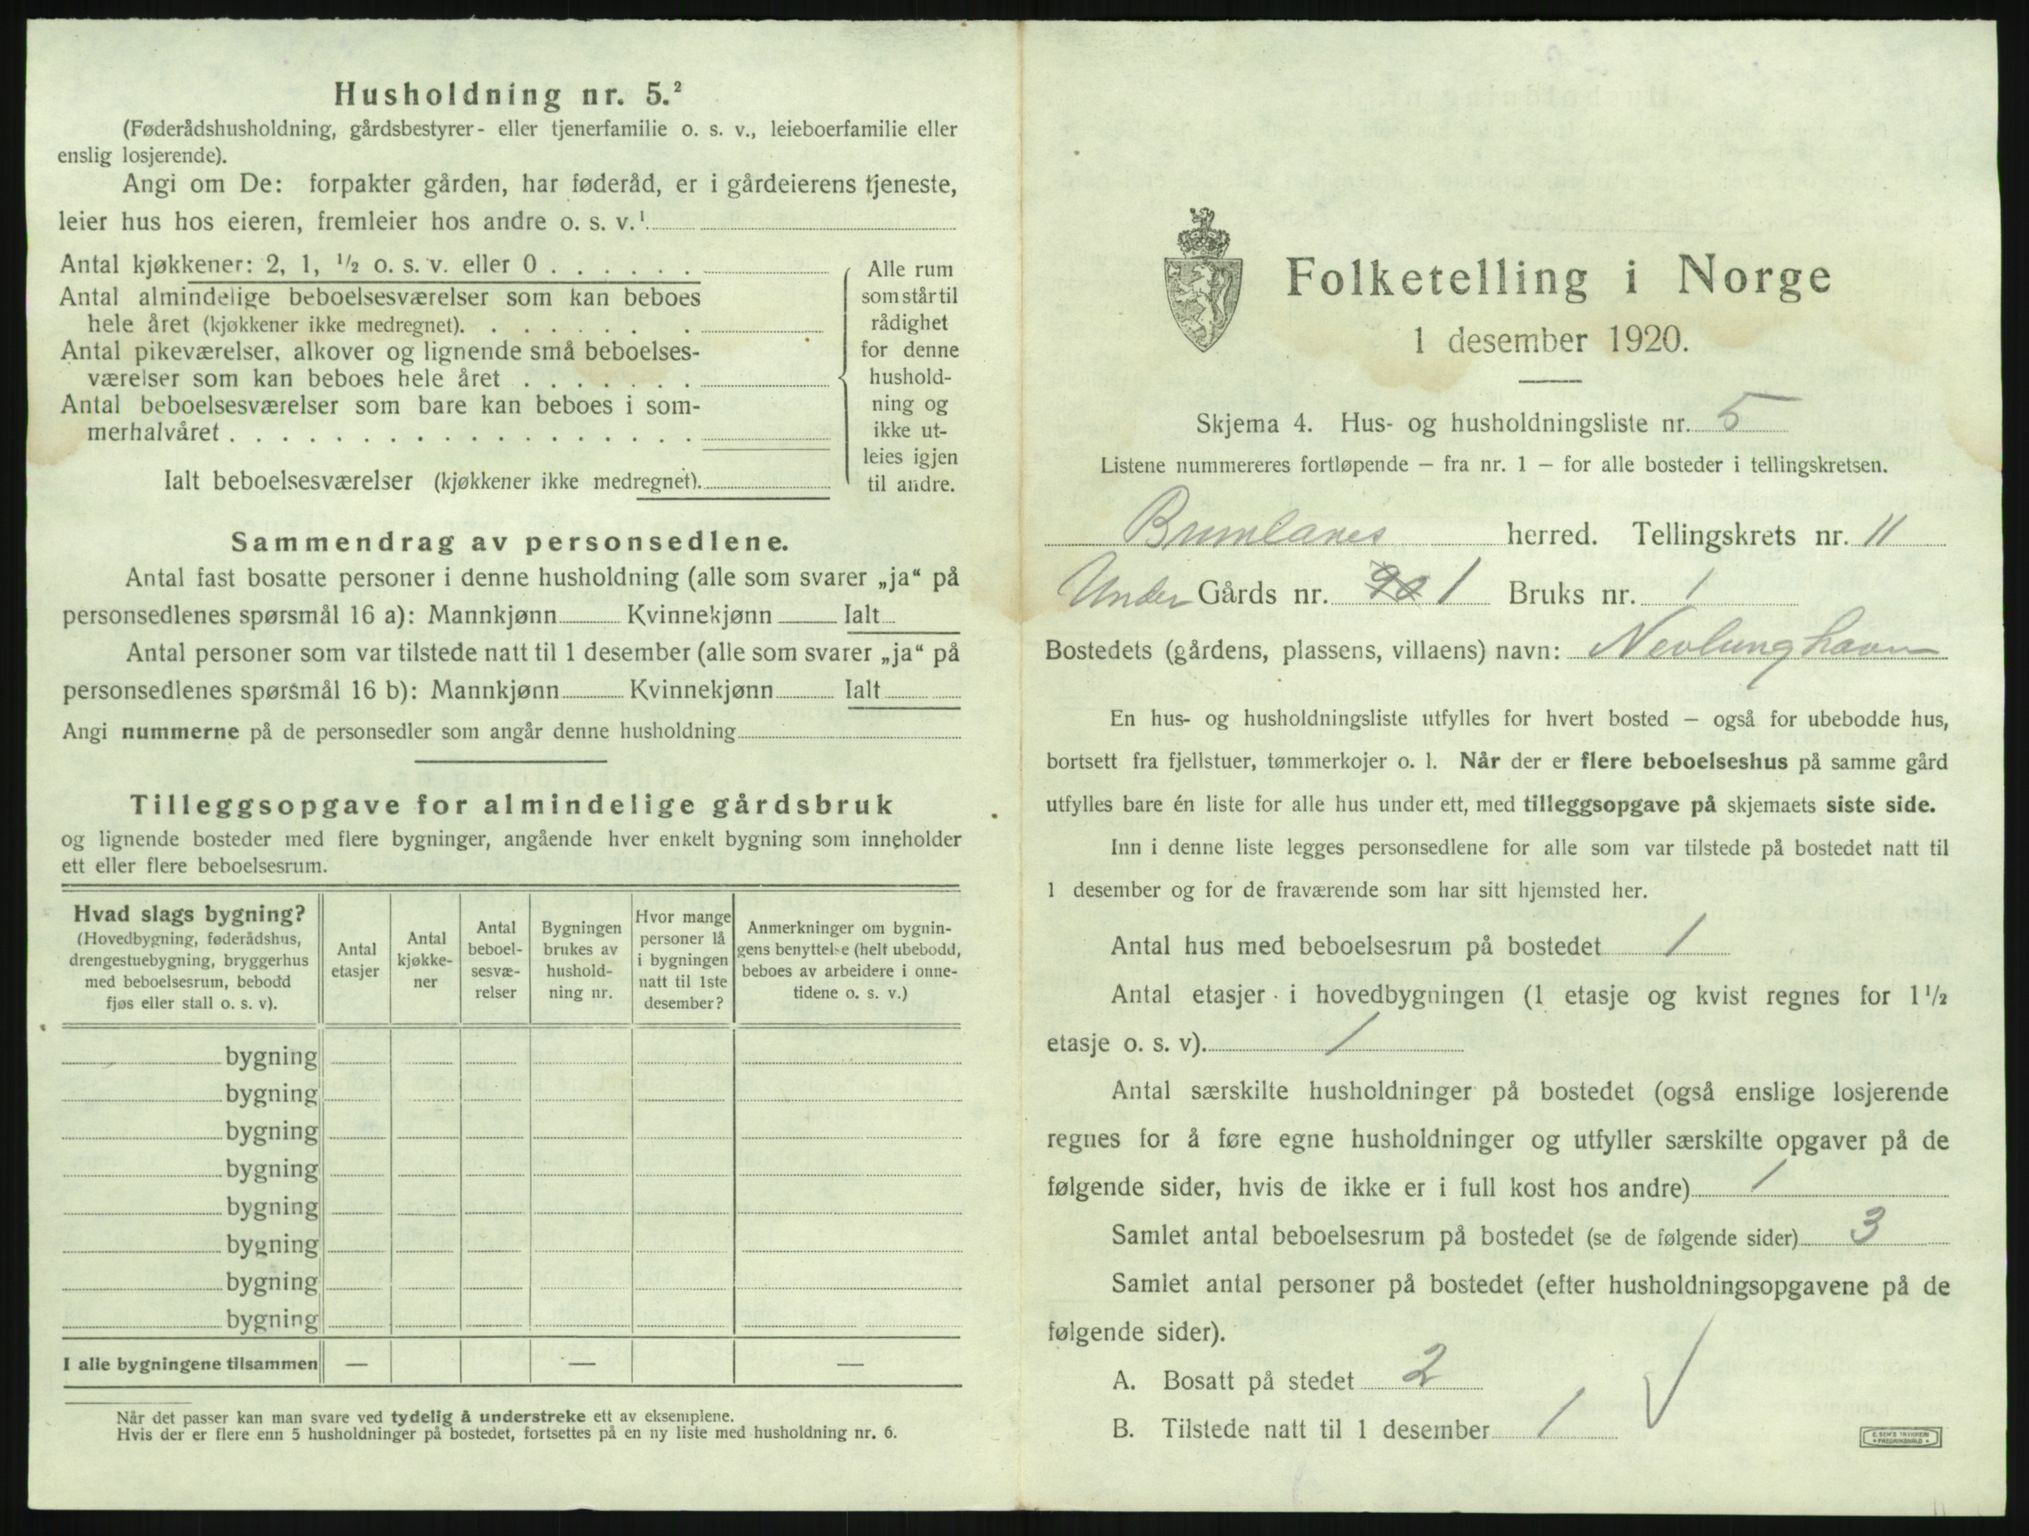 Husholdning nr. 5.²
(Føderådshusholdning, gårdsbestyrer- eller tjenerfamilie o. s. v., leieboerfamilie eller
enslig losjerende).
Angi om De: forpakter gården, har føderåd, er i gårdeierens tjeneste,
leier hus hos eieren, fremleier hos andre o. s. v.¹
Antal kjøkkener: 2, 1, ½ o. s. v. eller 0
Antal almindelige beboelsesværelser som kan beboes
hele året (kjøkkener ikke medregnet).
Antal pikeværelser, alkover og lignende små beboelses-
værelser som kan beboes hele året
Antal beboelsesværelser som bare kan beboes i som-
merhalvåret
Ialt beboelsesværelser (kjøkkener ikke medregnet).
Alle rum
som står til
rådighet
for denne
hushold-
ning og
ikke ut-
leies igjen
til andre.
Sammendrag av personsedlene.
Antal fast bosatte personer i denne husholdning (alle som svarer „ja" på
personsedlenes spørsmål 16 a): Mannkjønn Kvinnekjønn Ialt
Antal personer som var tilstede natt til 1 desember (alle som svarer „ja" på
personsedlenes spørsmål 16 b): Mannkjønn Kvinnekjønn Ialt
Angi nummerne på de personsedler som angår denne husholdning
Tilleggsopgave for almindelige gårdsbruk
og lignende bosteder med flere bygninger, angående hver enkelt bygning som inneholder
ett eller flere beboelsesrum.
Hvad slags bygning?
(Hovedbygning, føderådshus,
drengestuebygning, bryggerhus
med beboelsesrum, bebodd
fjøs eller stall o. s. v).
Antal
etasjer
Antal
kjøkke-
ner
Antal
beboel-
sesvæ-
relser
Bygningen
brukes av
hushold-
ning nr.
Hvor mange
personer lå
i bygningen
natt til 1ste
desember?
Anmerkninger om bygnin-
gens benyttelse (helt ubebodd,
beboes av arbeidere i onne-
tidene o. s. v.)
bygning
bygning
bygning
bygning
bygning
bygning
bygning
bygning
I alle bygningene tilsammen — — —
Når det passer kan man svare ved tydelig å understreke ett av eksemplene.
Hvis der er flere enn 5 husholdninger på bostedet, fortsettes på en ny liste med husholdning nr. 6.
Folketelling i Norge
1 desember 1920.
Skjema 4. Hus- og husholdningsliste nr. 5
Listene nummereres fortløpende – fra nr. 1 – for alle bosteder i tellingskretsen.
Brunlanes herred. Tellingskrets nr. 11
Under Gårds nr. 90 1 Bruks nr. 1
Bostedets (gårdens, plassens, villaens) navn: Nevlunghavn
En hus- og husholdningsliste utfylles for hvert bosted – også for ubebodde hus,
bortsett fra fjellstuer, tømmerkojer o. l. Når der er flere beboelseshus på samme gård
utfylles bare én liste for alle hus under ett, med tilleggsopgave på skjemaets siste side.
Inn i denne liste legges personsedlene for alle som var tilstede på bostedet natt til
1 desember og for de fraværende som har sitt hjemsted her.
Antal hus med beboelsesrum på bostedet 1
Antal etasjer i hovedbygningen (1 etasje og kvist regnes for 1½
etasje o. s. v). 1
Antal særskilte husholdninger på bostedet (også enslige losjerende
regnes for å føre egne husholdninger og utfyller særskilte opgaver på de
følgende sider, hvis de ikke er i full kost hos andre) 1
Samlet antal beboelsesrum på bostedet (se de følgende sider) 3
Samlet antal personer på bostedet (efter husholdningsopgavene på de
følgende sider).
A. Bosatt på stedet 2
B. Tilstede natt til 1 desember 1